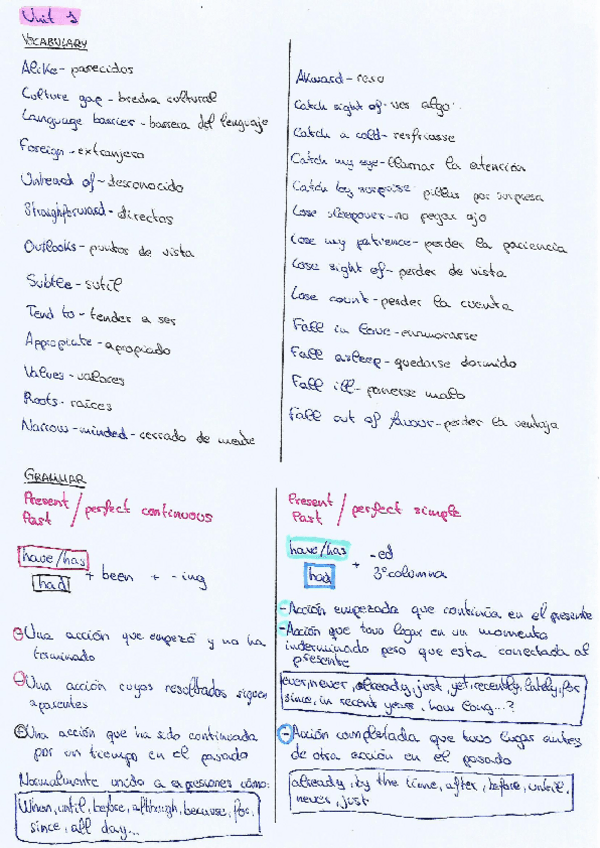 Unit 1
VOCABULARY
Alike - parecidos
Culture gap - brecha cultural
Language barrier - barrera del lenguaje
Foreign - extranjero
Unheard of - desconocido
Straightforward - directos
Outlooks - puntos de vista
Subtle - sutil
Tend to - tender a ser
Appropiate - apropiado
Values - valores
Roots - raíces
Narrow-minded - cerrado de mente
Akward - raro
Catch sight of - ver algo
Catch a cold - resfriarse
Catch my eye - llamar la atención
Catch by surprise pillar por sorpresa
Lose sleepover - no pegar ojo
Lose my patience - perder la paciencia
Lose sight of - perder de vista
Lose count - perder la cuenta
Fall in love - enamorarse
Fall asleep - quedarse dormido
Fall ill - ponerse malo
Fall out of favour - perder la ventaja
GRAMMAR
Present
Past / perfect continuous
have/has
had + been + -ing
- Una acción que empezó y no ha
terminado
- Una acción cuyos resultados siguen
aparentes
- Una acción que ha sido continuada
por un tiempo en el pasado
Normalmente unido a expresiones como:
When, until, before, although, because, for,
since, all day...
Present
Past / perfect simple
have/has
had + -ed
3º columna
- Acción empezada que continúa en el presente
- Acción que tuvo lugar en un momento
indeterminado pero que esta conectada al
presente
ever, never, already, just, yet, recently, lately, for
since, in recent years, how long...?
- Acción completada que tuvo lugar antes
de otra acción en el pasado
already, by the time, after, before, until,
never, just